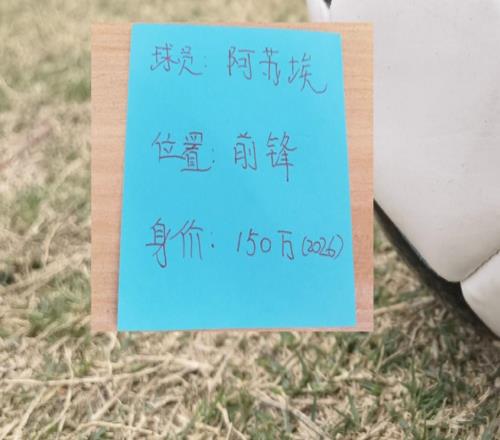 球员：阿苏埃
位置：前锋
身价：150万(2026)